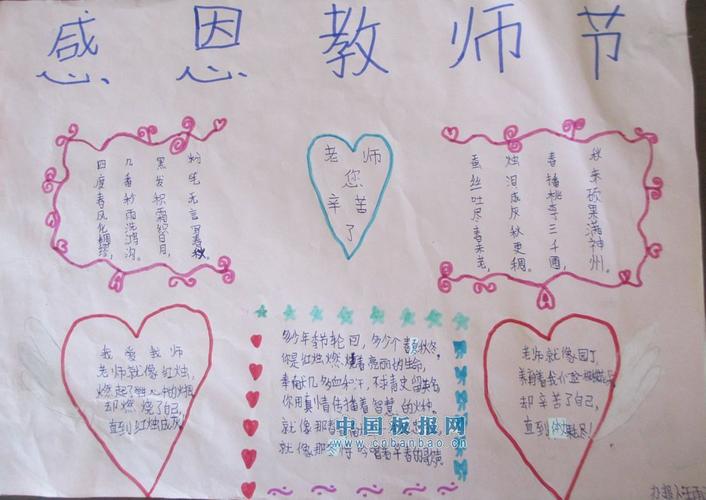 感恩教师节
四度春风化绸缪,
几番秋雨洗鸿沟。
黑发积霜智日月,
粉笔无言写春秋。
老师
您
辛苦
了
蚕丝吐尽春未老,
烛泪成灰秋更稠。
春播桃李三千圃,
秋来硕果满神州。
我爱教师
老师就像红烛,
燃起了
却燃烧了自己,
直到红烛成灰!
轮回,多少个春秋冬,
你是红烛燃烧着亮丽的生命,
奉献几多血和汗,不求青史留
你用真情传播着智慧的火种。
就像那
就像那 吟唱着
老师就像园丁
却辛苦了自己,
直到 尽!
中国板报网
www.cnbanbao.cn